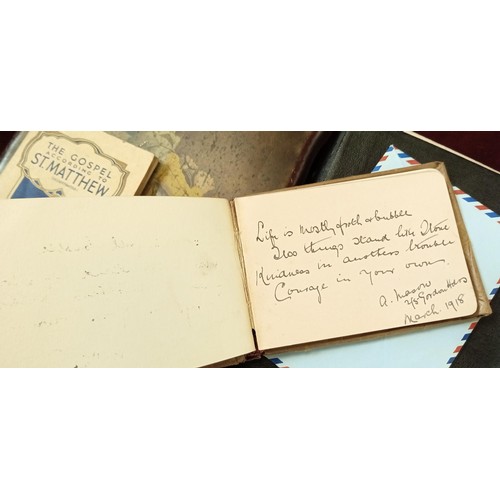 THE GOSPEL
ACCORDING TO
ST. MATTHEW
Life is mostly froth & bubble
Two things stand like Stone
Kindness in anothers trouble
Courage in your own.
A. Mason
2/8 Gordon Hdrs
March. 1918